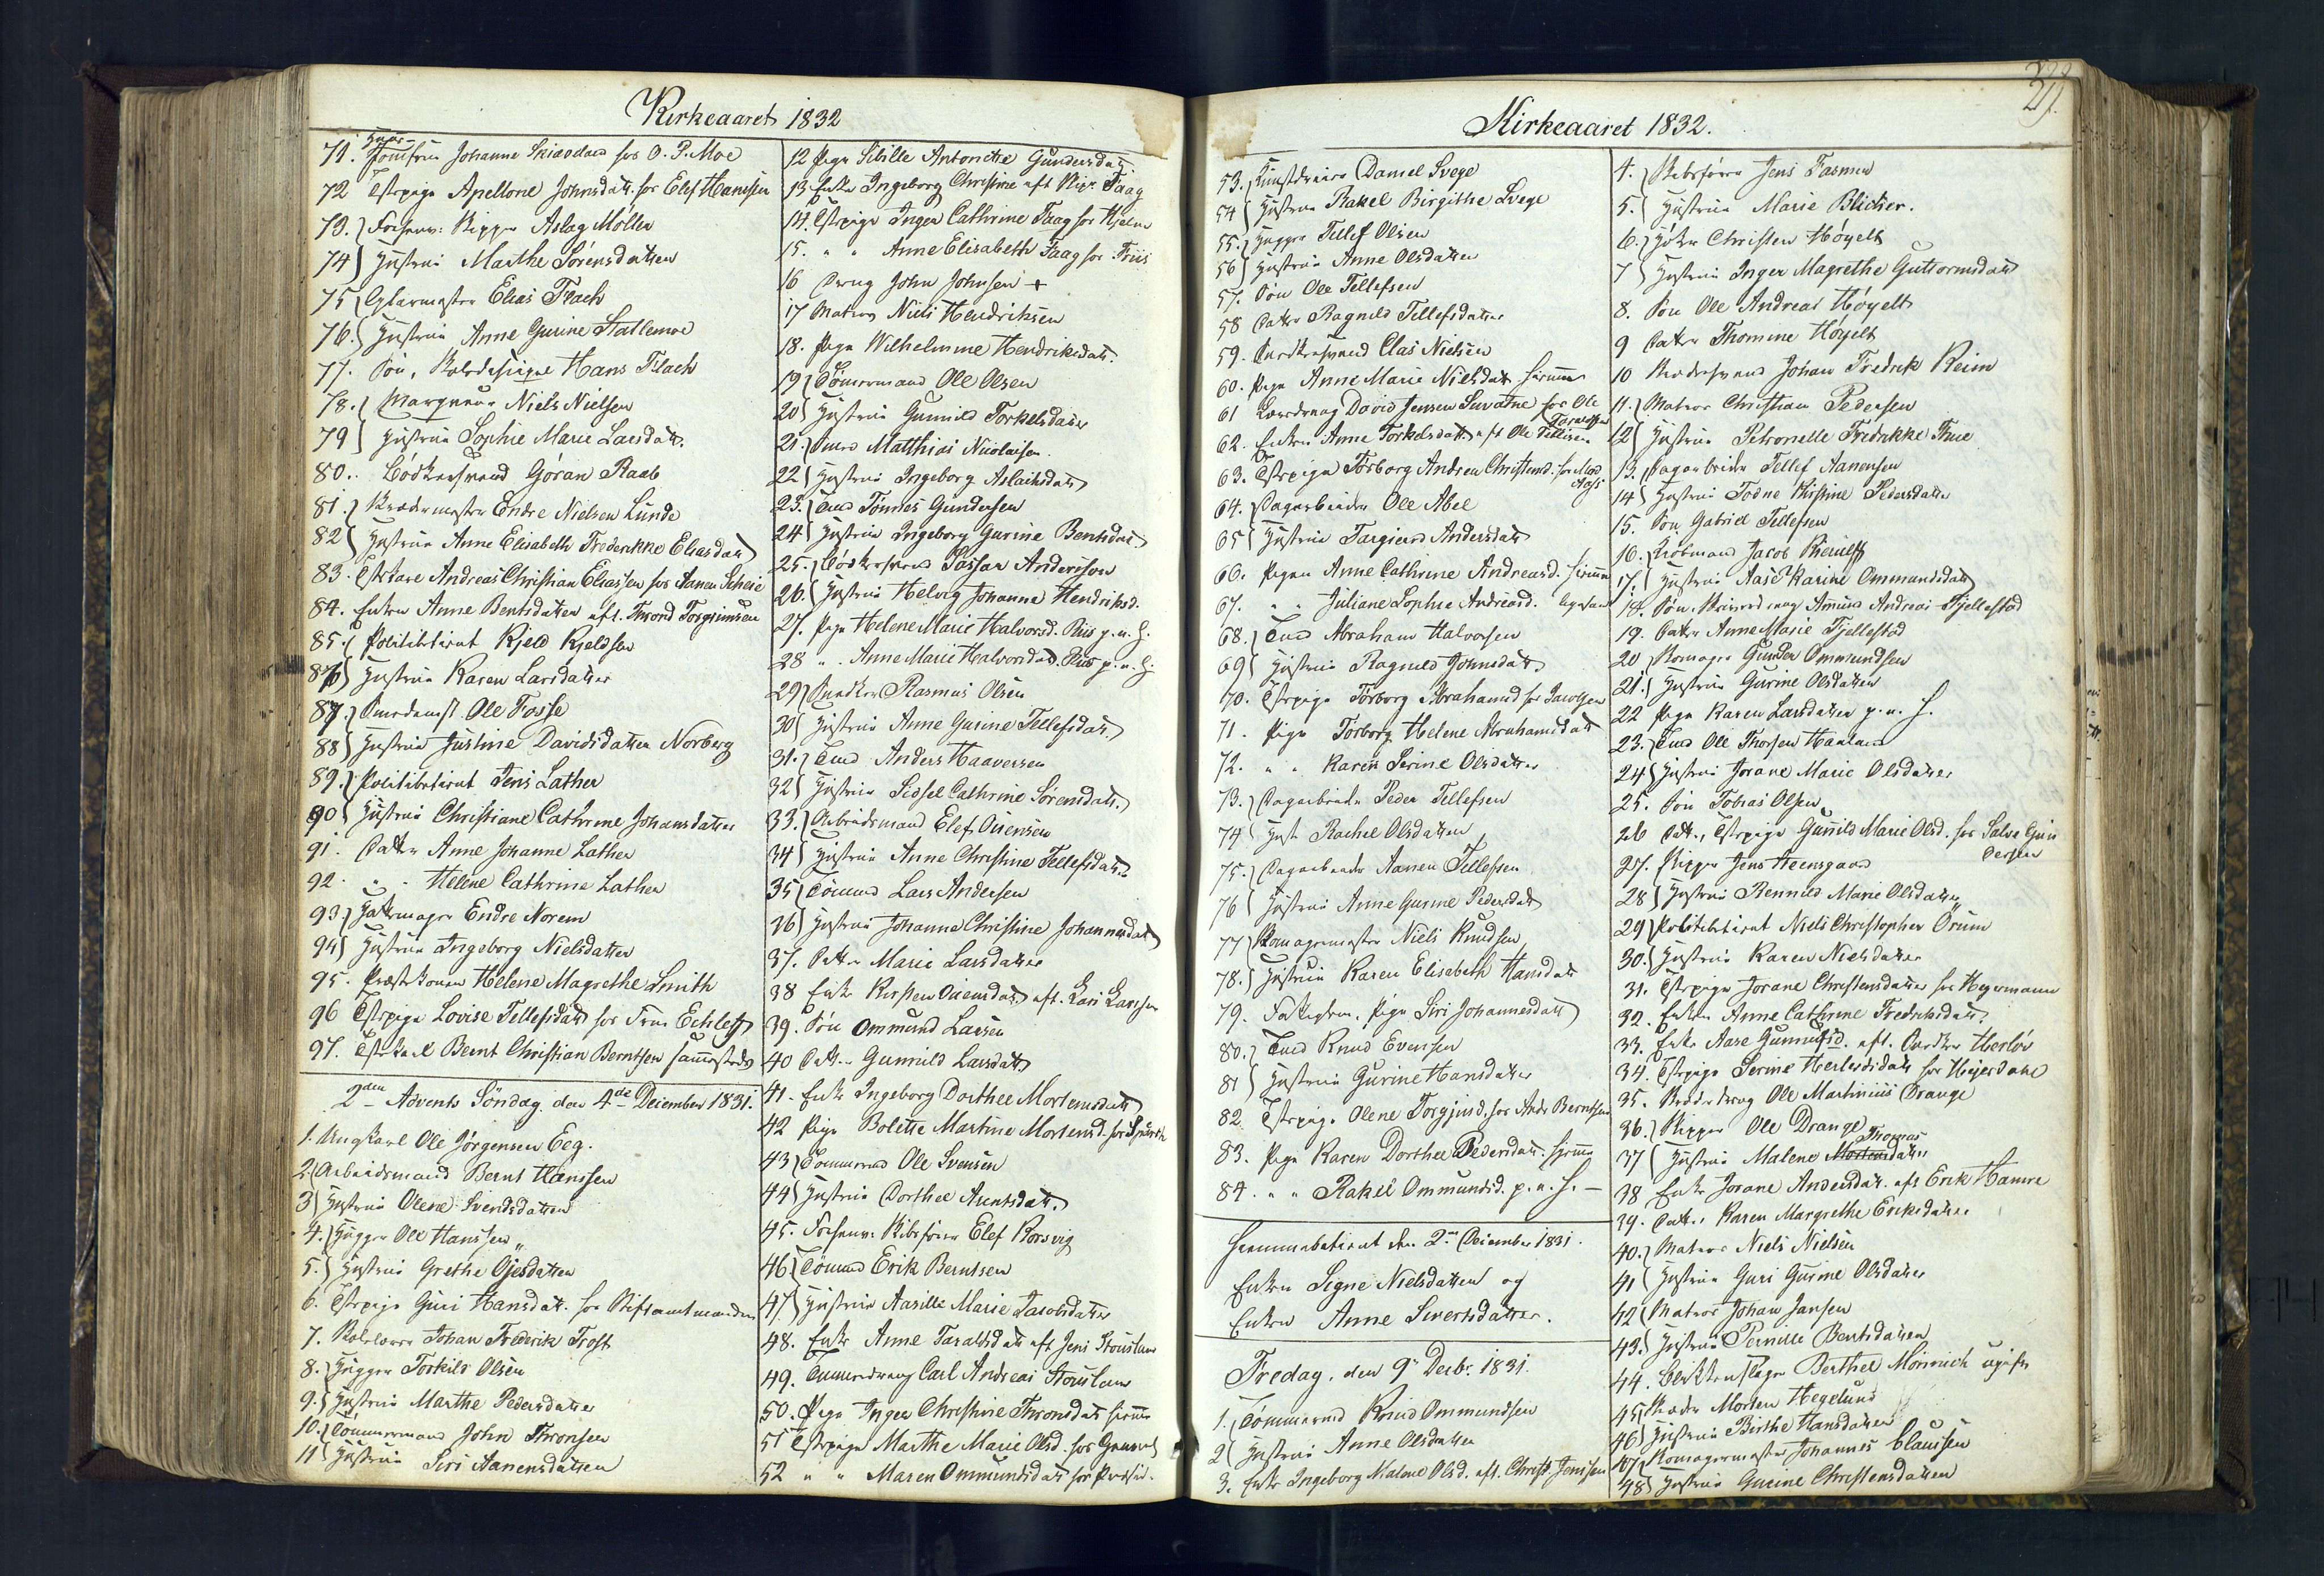 Kirkeaaret 1832
71. Jomfrue Johanne Skiændand hos O. P. Moe
72 Tstpige Apellone Johnsdatt. hos Elef Hanssen
73. Forhenv: Skipper Aslag Møller
74 Hustrue Marthe Sørensdatter
75 Glarmester Elias Flach
76. Hustrue Anne Gurine Stallemoe
77. Søn, Hans Flach
78. Marqueur Niels Nielsen
79 Hustrue Sophie Marie Larsdatt.
80. Bødkersvend Gøran Raab
81. Skrædermester Endre Nielsen Lunde
82 Hustrue Anne Elisabeth Frederikke Eliasdatt
83. Tstkarl Andreas Christian Eliassen hos Aanen Scheie
84. Enken Anne Bentsdatter eft. Thrond Torgrimsen
85. Politibetient Kjeld Kjeldsen
86 Hustrue Karen Larsdatter
87. Ole Fosse
88 Hustrue Justine Davidsdatter Norberg
89. Politibetient Jens Lather
90 Hustrue Christiane Cathrine Johansdatter
91. Datter Anne Johanne Lather
92. " - Helene Cathrine Lather
93. Hattemager Endre Norem
94 Hustrue Ingeborg Nielsdatter
95. Helene Magrethe Smith
96 Tstpige Lovise Tellefsdatt hos Frue Eckleff
97. Tstkarl Bernt Christian Berntsen sammesteds
2den Advents Söndag den 4de December 1831.
1. Ungkarl Ole Jörgensen Eeg.
2. Arbeidsmand Bernt Hanssen
3 Hustrue Olene Svendsdatter
4. Hugger Ole Hanssen
5. Hustrue Grethe Ojesdatter
6. Tstpige Guri Hansdatt. hos Stiftsamtmanden
7. Johan Frederik Trost
8. Hugger Torkild Olsen
9. Hustrue Marthe Pedersdatter
10. Tømmermand John Thronsen
11 Hustrue Siri Aanensdatter
12 Pige Sibille Antonette Gundersdatt
13 Enke Ingeborg Christine eft Skipr Faag
14. Tstpige Inger Cathrine Faag hos Hjelm
15. " " Anne Elisabeth Faag hos Friis
16 Dreng John Johnsen +
17 Matros Niels Hendriksen
18. Pige Wilhelmine Hendriksdatt.
19 Tömmermand Ole Olsen
20 Hustrue Gunnild Torkelsdatter
21. Matthias Nicolaisen
22 Hustrue Ingeborg Aslaksdatt
23. Tmd Tönnes Gundersen
24 Hustrue Ingeborg Gurine Bentsdat.
25. Bødkersvend Passar Anderson
26. Hustrue Helvig Johanne Hendriksd.
27. Pige Helene Marie Halvorsd. Riis p. u. H.
28 " . Anne Marie Halvorsdat. Riis p. u. H.
29 Snedker Rasmus Olsen
30 Hustrue Anne Gurine Tellefsdat.
31. Tmd Anders Haaversen
32 Hustrue Sidsel Cathrine Sørensdatt.
33. Arbeidsmand Elef Ouensen
34 Hustrue Anne Christine Tellefsdatt.
35 Tömmd Lars Andersen
36 Hustrue Johanne Christine Johannesdatt
37. Datter Marie Larsdatter
38 Enke Kirsten Ouensdatt eft. Lars Larssen
39. Søn Ommund Larsen
40 Datt. Gunnild Larsdatt
41. Enke Ingeborg Dorthee Mortensdatt
42 Pige Bolette Martine Mortensd.
43 Tömmermd Ole Svensen
44 Hustrue Dorthee Arentsdatt.
45. Forhenv. Skibsfører Elef Korsvig
46 Tömmd Erik Berntsen
47 Hustrue Aasille Marie Jacobsdatter
48. Enke Anne Taraldsdatt eft Jens Stousland
49. Tømmerdreng Carl Andreas Stousland
50. Pige Inger Christine Thronsdatt hiemme
51 Tstpige Marthe Marie Olsd. hos General
52 " " Maren Ommundsdatt hos
Kirkeaaret 1832.
53. Kunstdreier Daniel Svege
54 Hustrue Rakel Birgithe Svege
55. Hugger Tellef Olsen
56 Hustrue Anne Olsdatter
57. Søn Ole Tellefsen
58 Datter Ragnild Tellefsdatter
59. Snedkersvend Clas Nielsen
60. Pige Anne Marie Nielsdatt hiemme
61 Læredreng David Jensen hos Ole Taraldsen
62. Enken Anne Torkelsdatt. eft Ole Tellisen
63. Tstpige Torborg Andrea Christensd. hos
64. Dagarbeider Ole Abel
65 Hustrue Targierd Andersdatt
66. Pigen Anne Cathrine Andreasd. hiemme
67. " " Juliane Sophie Andreasd. ligesaa
68. Tmd Abraham Halvorsen
69 Hustrue Ragnild Johnsdatt
70. Tstpige Torborg Abrahamsd hos Jacobsen
71. Pige Torborg Helene Abrahamsdatt
72. " " Karen Serine Olsdatter
73. Dagarbeider Peder Tellefsen
74 Hust Rachel Olsdatter
75. Dagarbeider Aanen Tellefsen
76 Hustrue Anne Gurine Pedersdatt
77 Skomagermester Niels Knudsen
78. Hustrue Karen Elisabeth Hansdatt
79. Fattiglem. Pige Siri Johannesdatt
80. Tmd Knud Evensen
81 Hustrue Gurine Hansdatter
82. Tstpige Olene Torgjusd. hos Anders Berntsen
83. Pige Karen Dorthee Pedersdatt. hiemme
84. " " Rakel Ommundsd. p. u. H. —
Hiemmebetient den 2den December 1831.
Enken Signe Nielsdatter og
Enken Anne Sivertsdatter.
Fredag, den 9de Decbr. 1831.
1. Tömmermd Knud Ommundsen
2 Hustrue Anne Olsdatter
3. Enke Ingeborg Malene Olsd. eft. Christ. Jenssen
4. Skibsfører Jens Fasmer
5. Hustrue Marie Blicher.
6. Høker Christen Höyelt
7 Hustrue Inger Magrethe Guttormsdatt
8. Søn Ole Andreas Höyelt
9 Datter Thomine Höyelt
10 Skrædersvend Johan Fredrik Reim
11. Matros Christian Pedersen
12 Hustrue Petronelle Fredrikke Thue
13. Dagarbeider Tellef Aanensen
14 Hustrue Todne Kirstine Pedersdatter
15. Søn Gabriel Tellefsen
16. Kiøbmand Jacob Kierulff
17. Hustrue Aase Karine Ommundsdatt
18. Søn, Amund Andreas Fjellestad
19. Datter Anne Marie Fjellestad
20 Skomager Gunder Ommundsen
21. Hustrue Gurine Olsdatter
22 Pige Karen Larsdatter p. u. H.
23. Tmd Ole Thorsen Haaland
24 Hustrue Jorane Marie Olsdatter
25. Søn Tobias Olsen
26 Datt., Tstpige Gunnild Marie Olsd. hos Salve Gundersen
27. Skipper Jens Heensgaard
28 Hustrue Rennild Marie Olsdatter
29 Politibetient Niels Christopher Örum
30. Hustrue Karen Nielsdatter
31. Tstpige Jorane Christensdatter hos Hegermann
32. Enken Anne Cathrine Fredriksdatt.
33. Enke Aase Gunnulfsd. eft. Snedker Herlöv
34. Tstpige Serine Herlofsdatt hos Heyerdahl
35. Skræderdreng Ole Martinius Drange
36. Skipper Ole Drange
37 Hustrue Malene Thomasdatter
38 Enke Jorane Andersdatt. eft Erik Hamre
39. Datt. Karen Margrethe Eriksdatter
40. Matros Niels Nielsen
41 Hustrue Guri Gurine Olsdatter
42 Matros Johan Jansen
43. Hustrue Pernille Bentsdatter
44. Blikkenslager Berthel Mörinich ugift
45 Skræder Morten Hegelund
46 Hustrue Birthe Hansdatter
47 Skomagermester Johannes Claussen
48 Hustrue Gurine Christensdatter